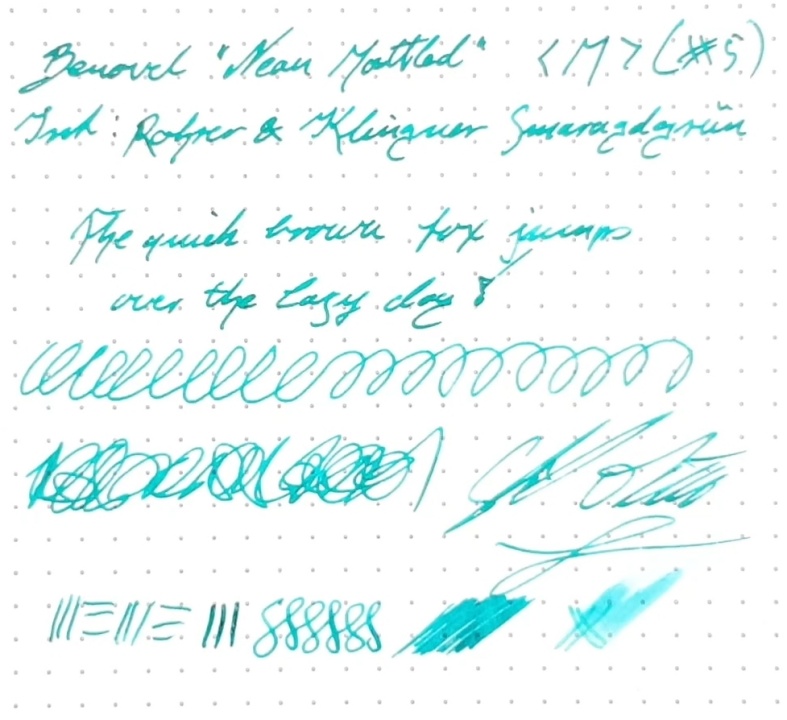 Benovel "Neau Mottled" <M> (#5)
Ink: Rohrer & Klingner Smaragdgrün
The quick brown fox jumps
over the lazy dog!